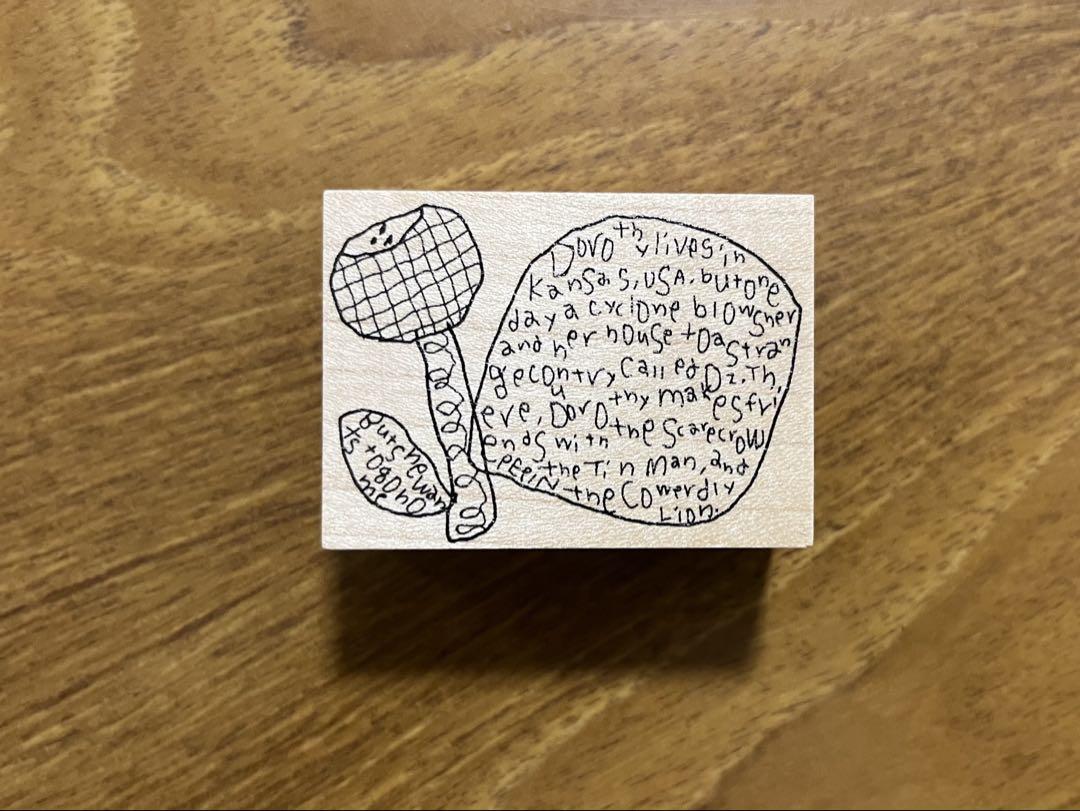 Dorothy lives in
Kansas, USA. but one
day a cyclone blows her
and her house to a stran
ge country called Oz. Th,
ere, Dorothy makes fri
ends with the Scarecrow
the Tin Man, and
the Cowerdly
Lion.
But she wan
ts to go ho
me